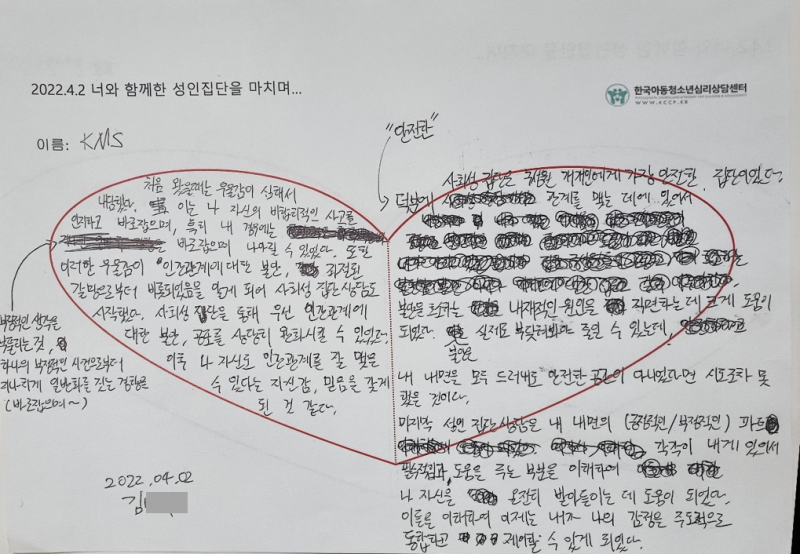 2022.4.2 너와 함께한 성인집단을 마치며...
한국아동청소년심리상담센터
WWW.KCCP.KR
이름: KMS
"안전한"
처음 왔을때는 우울감이 심해서
내담했다. 이는 나 자신의 비합리적인 사고를
인지하고 바로잡으며, 특히 내 경우에는
바로잡으며 나아질 수 있었다. 또한
이러한 우울감이 '인간관계에 대한 불안, 좌절된
갈망으로부터 비롯되었음을 알게 되어 사회성 집단 상담도
시작했다. 사회성 집단을 통해 우선 인간관계에
대한 불안, 공포를 상당히 완화시킬 수 있었고,
이후 나 자신도 인간관계를 잘 맺을
수 있다는 자신감, 믿음을 갖게
된 것 같다.
부정적인 생각을
하나의 부정적인 사건으로부터
지나치게 일반화를 짓는 경향을
(바로잡으며~)
2022.04.02
김
사회성 집단은 집단원 개개인에게 가장 안전한 집단이었다.
덕분에 관계를 맺는 데에 있어서
불안을 내재적인 원인을 직면하는데 크게 도움이
되었다. 실제로 부딪혀봐야 줄일 수 있는데,
불안은
내 내면을 모두 드러내도 안전한 공간이 아니었다면 시도조차 못
했을 것이다.
마지막 성인 집단상담은 내 내면의 (긍정적인/부정적인) 파트
각각이 내게 있어서
필수적임과 도움을 주는 부분을 이해하여
나 자신을 온전히 받아들이는 데 도움이 되었다.
이들을 이해하여 이제는 내가 나의 감정을 주도적으로
통합하고 제어할 수 있게 되었다.